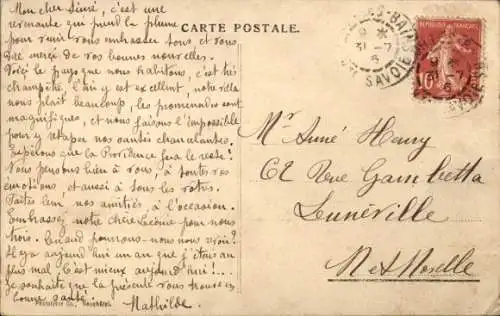 CARTE POSTALE.
Mon cher Aimé, c'est une
revenante qui prend la plume
pour venir vous embrasser tous et vous
dire merci de vos bonnes nouvelles.
Voici le pays que nous habitons, c'est très
champêtre, l'air y est excellent, notre villa
nous plaît beaucoup, les promenades sont
magnifiques, et nous faisons l'impossible
pour y retaper nos santés chancelantes.
Espérons que la Providence fera le reste!
Nous pensons bien à vous, à toutes vos
émotions, et aussi à tous les vôtres.
Faites leur nos amitiés, à l'occasion.
Embrassez notre chère Léonie pour nous
trois. Quand pourrons-nous vous voir?
Il y a aujourd'hui un an que j'étais au
plus mal. C'est mieux aujourd'hui!...
Je souhaite que la présente vous trouve en
bonne santé.
Mathilde.
Mr Aimé Henry
62 Rue Gambetta
Lunéville
Mt et Moselle
REPUBLIQUE FRANÇAISE
10
31 -7
SAVOIE